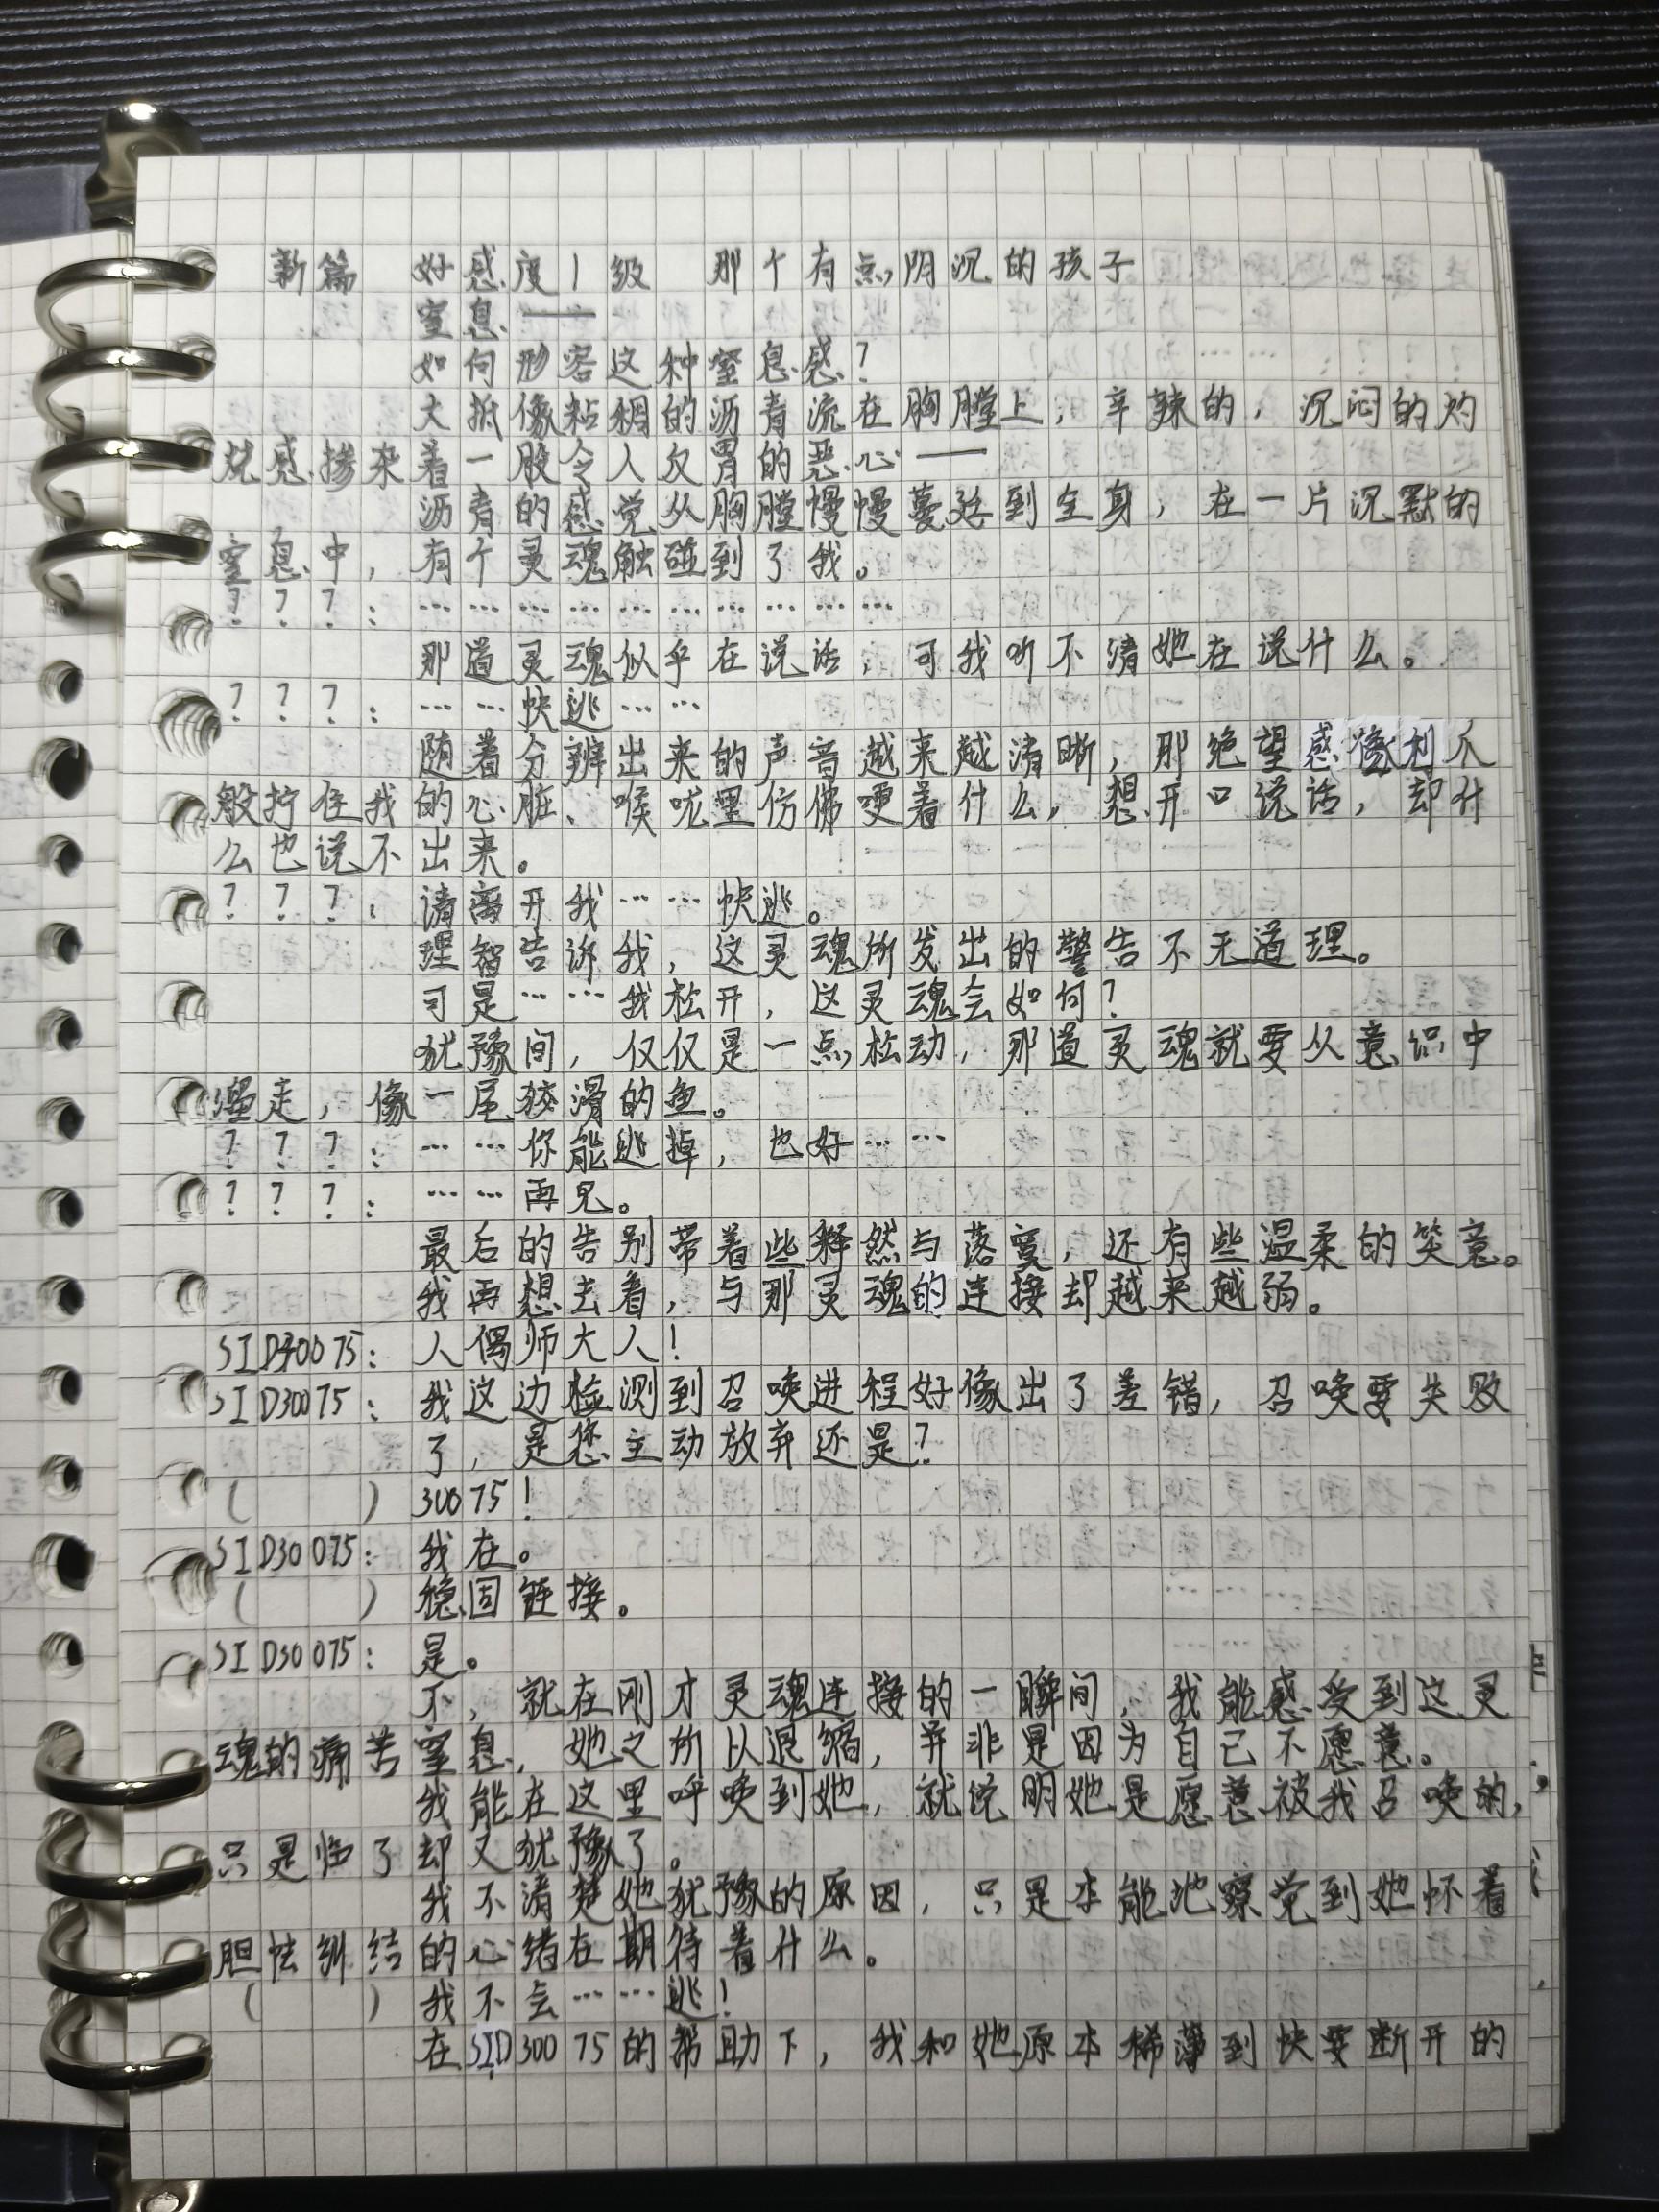 新篇 好感度1级 那个有点阴沉的孩子
窒息——
如何形容这种窒息感?
大抵像粘稠的沥青流在胸膛上,辛辣的,沉闷的灼
烧感掺杂着一股令人反胃的恶心——
沥青的感觉从胸膛慢慢蔓延到全身,在一片沉默的
窒息中,有个灵魂触碰到了我。
???:…………………………
那道灵魂似乎在说话,可我听不清她在说什么。
???:……快逃……
随着分辨出来的声音越来越清晰,那绝望感像利爪
般拧住我的心脏、喉咙里仿佛哽着什么,想开口说话,却什
么也说不出来。
???:请离开我……快逃。
理智告诉我,这灵魂所发出的警告不无道理。
可是……我松开,这灵魂会如何?
犹豫间,仅仅是一点松动,那道灵魂就要从意识中
溜走,像一尾狡滑的鱼。
???:……你能逃掉,也好……
???:……再见。
最后的告别带着些释然与落寞,还有些温柔的笑意。
我再想去看,与那灵魂的连接却越来越弱。
SID30075:人偶师大人!
SID30075:我这边检测到召唤进程好像出了差错,召唤要失败
了,是您主动放弃还是?
( ) 30075!
SID30075:我在。
( ) 稳固链接。
SID30075:是。
不,就在刚才灵魂连接的一瞬间,我能感受到这灵
魂的痛苦窒息,她之所以退缩,并非是因为自己不愿意。
我能在这里呼唤到她,就说明她是愿意被我召唤的,
只是临了却又犹豫了。
我不清楚她犹豫的原因,只是本能地察觉到她怀着
胆怯纠结的心绪在期待着什么。
( ) 我不会……逃!
在SID30075的帮助下,我和她原本稀薄到快要断开的